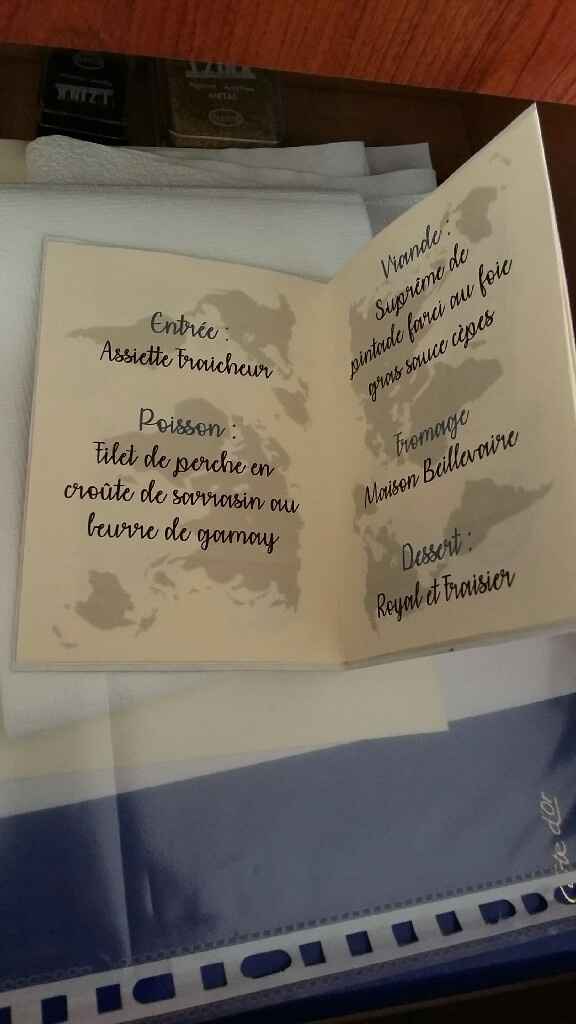 Entrée :
Assiette Fraicheur
Poisson :
Filet de perche en
croûte de sarrasin au
beurre de gamay
Viande :
Suprême de
pintade farci au foie
gras sauce cèpes
Fromage
Maison Beillevaire
Dessert :
Royal et Fraisier
IZINK
IZINK
d'Or